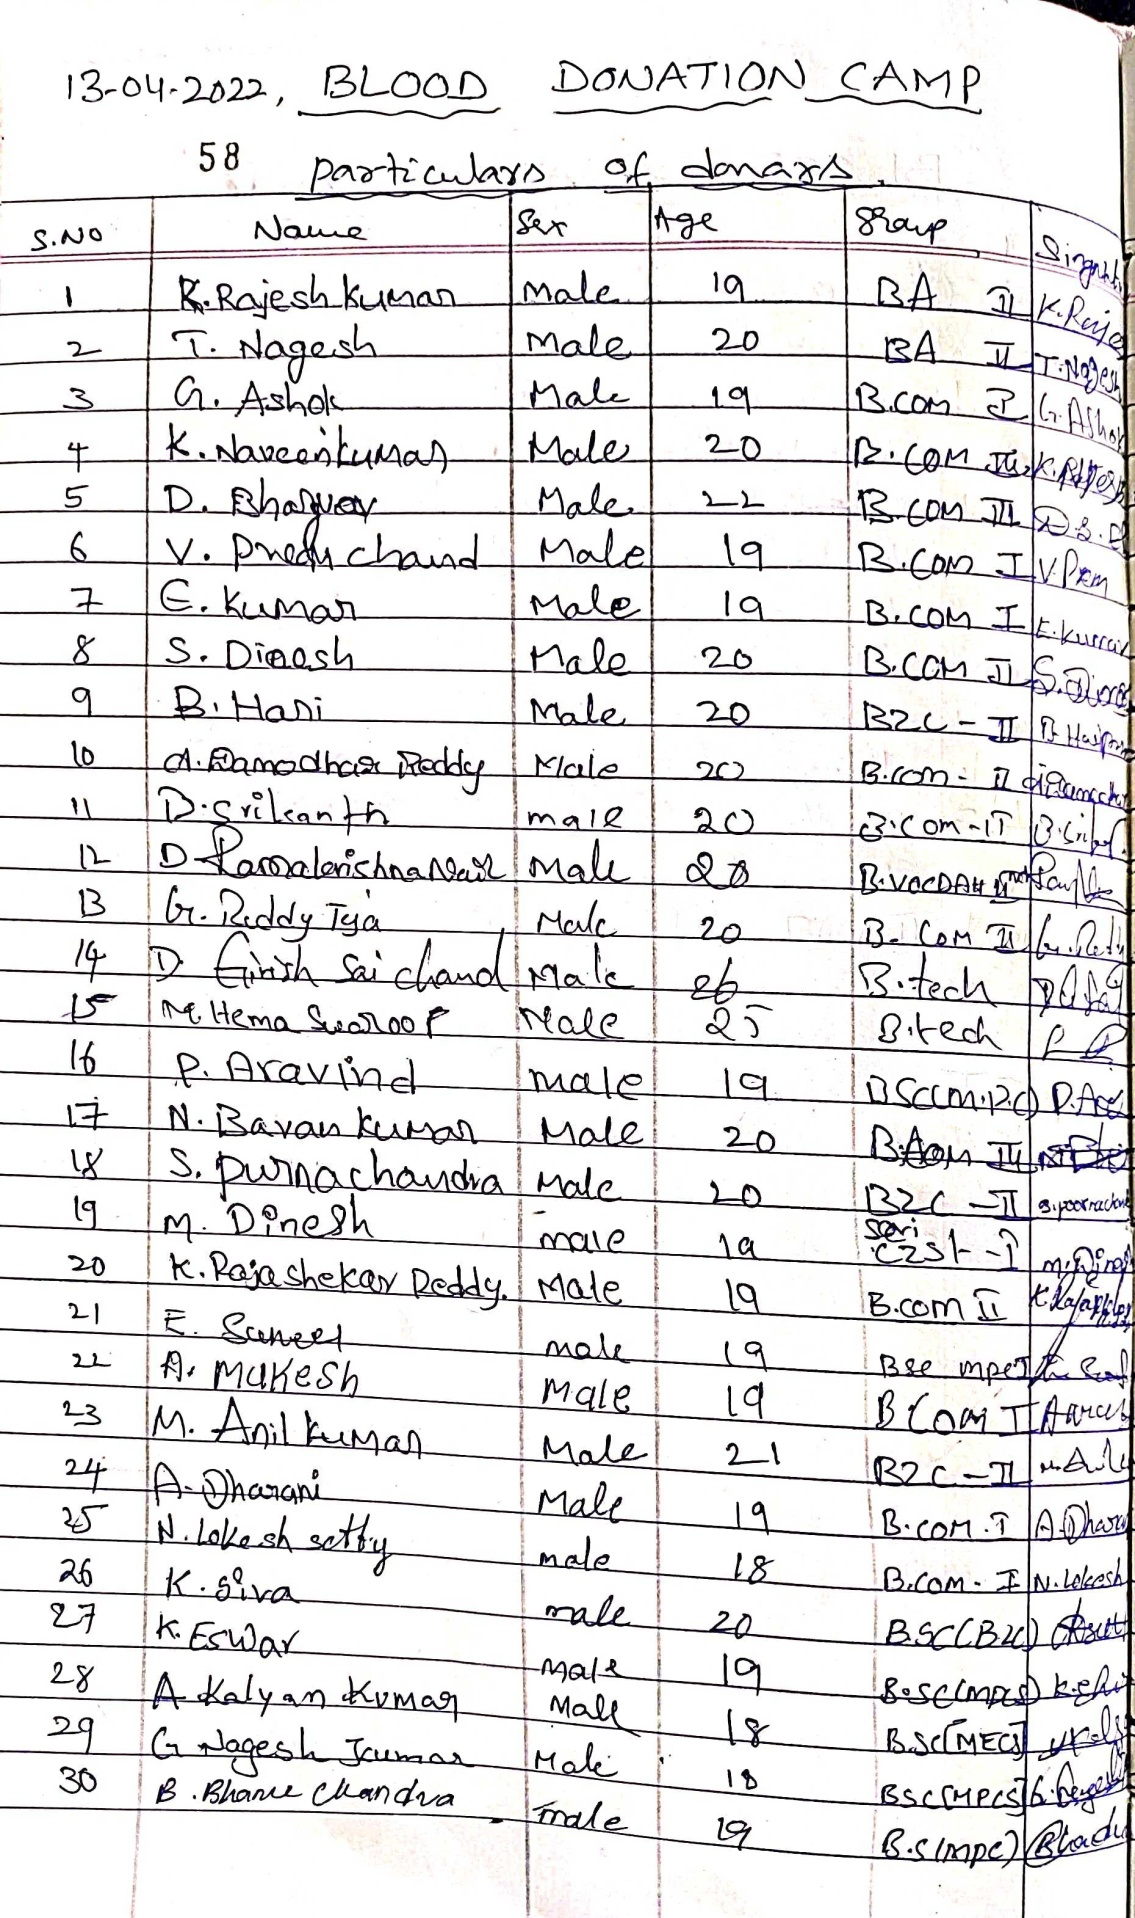 13-04-2022, BLOOD DONATION CAMP
58 particulars of donars
S.NO Name Sex Age Group
1 K.Rajesh kumar Male 19 BA II
2 T. Nagesh Male 20 BA II T.Nagesh
3 G. Ashok Male 19 B.COM G.Ashok
4 K. Naveenkumar Male 20 B.COM
5 D. Male 22 B.COM III
6 V. chand Male 19 B.COM I V.Prem
7 E. Kumar Male 19 B.COM I E.Kumar
8 S. Dinesh Male 20 B.COM II
9 B. Hari Male 20 BZC - II
10 A. Damodhar Reddy Male 20 B.com - II
11 D. Srikanth male 20 B.COM - II
12 D Ramakrishna Naik Male 20
13 G. Reddy Teja Male 20 B. Com II
14 D Girish Sai chand Male B.tech
15 M Hema Swaroop Male 25 B.tech
16 P. Aravind male 19
17 N. Bavan kumar Male 20 III
18 S. purnachandra Male 20 BZC - II
19 M. Dinesh male 19 seri czst - I
20 K. Rajashekar Reddy. Male 19 B.com II
21 E. Suneel male 19
22 A. Mukesh Male 19 B Com I
23 M. Anil kumar Male 21 BZC - II
24 A. Dharani Male 19 B.COM. I A.Dhara
25 N. Lokesh setty male 18 B.COM - I N. Lokesh
26 K. Siva male 20 BSC(BZC)
27 K. Eswar Male 19 B.SC(MPCS)
28 A Kalyan Kumar Male 18 B.SC[MECS]
29 G Nagesh kumar Male 18 BSC[MPCS]
30 B. Bhanu Chandra male 19 B.S(MPC)